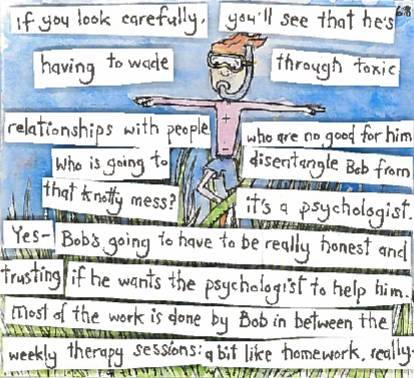 if you look carefully, you'll see that he's
having to wade through toxic
relationships with people who are no good for him
who is going to disentangle Bob from
that knotty mess? it's a psychologist
Yes- Bob's going to have to be really honest and
trusting if he wants the psychologist to help him.
Most of the work is done by Bob in between the
weekly therapy sessions: a bit like homework, really.